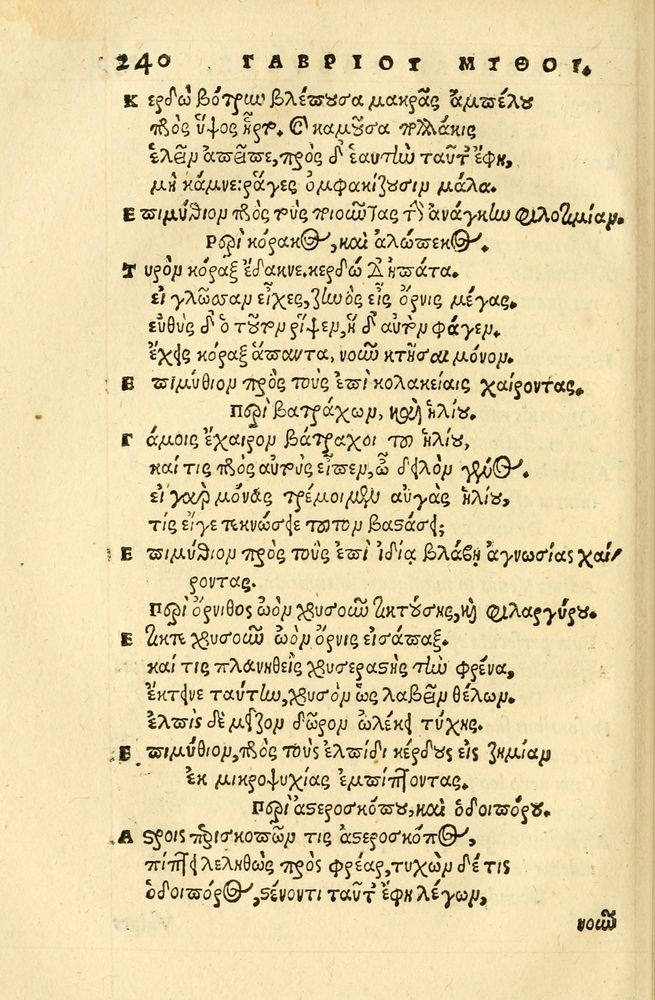 240 ΓΑΒΡΙΟΥ ΜΥΘΟΙ.
Κερδὼ βότρυν βλέπουσα μακρᾶς ἀμπέλου
πρὸς ὕψος ἤρτο. καὶ καμοῦσα πολλάκις
ἑλεῖν ἀπεῖπε, πρὸς δ' ἑαυτὴν ταῦτ' ἔφη,
μὴ κάμνε: ῥάγες ὀμφακίζουσιν μάλα.
Ἐπιμύθιον πρὸς τοὺς ποιοῦντας τὴν ἀνάγκην φιλοτιμίαν.
Περὶ κόρακος, καὶ ἀλώπεκος.
Τυρὸν κόραξ ἔδακνε. κερδὼ δ' ἠπάτα.
εἰ γλῶσσαν εἶχες, ζηνὸς εἶς ὄρνις μέγας.
εὐθὺς δ' ὁ τοῦτον ῥῖψεν, ἡ δ' αὐτὸν φάγεν.
ἔχεις κόραξ ἅπαντα, νοῦν κτῆσαι μόνον.
Ἐπιμύθιον πρὸς τοὺς ἐπὶ κολακείαις χαίροντας.
Περὶ βατράχων, καὶ ἡλίου.
Γάμοις ἔχαιρον βάτραχοι τοῦ ἡλίου,
καί τις πρὸς αὐτοὺς εἶπεν, ὦ δειλὸν γένος.
εἰ γὰρ μόνας τρέμοιμεν αὐγὰς ἡλίου,
τίς εἴγε τεκνώσειε τοῦτον βαστάσει;
Ἐπιμύθιον πρὸς τοὺς ἐπὶ ἰδίᾳ βλάβῃ ἀγνωσίας χαί/
ροντας.
Περὶ ὄρνιθος ὠὸν χρυσοῦν τικτούσης, καὶ φιλαργύρου.
Ἔτικτε χρυσοῦν ὠὸν ὄρνις εἰσάπαξ.
καί τις πλανηθεὶς χρυσεραστὴς τὴν φρένα,
ἔκτεινε ταύτην, χρυσὸν ὡς λαβεῖν θέλων.
ἐλπὶς δὲ μεῖζον δῶρον ὠλέκει τύχης.
Ἐπιμύθιον, πρὸς τοὺς ἐλπίδι κέρδους εἰς ζημίαν
ἐκ μικροψυχίας ἐμπίπτοντας.
Περὶ ἀστεροσκόπου, καὶ ὁδοιπόρου.
Ἄστροις προσσκοπῶν τις ἀστεροσκόπος,
πίπτει λεληθὼς πρὸς φρέαρ, τυχὼν δέ τις
ὁδοιπόρος, στένοντι ταῦτ' ἔφη λέγων,
νοῦν